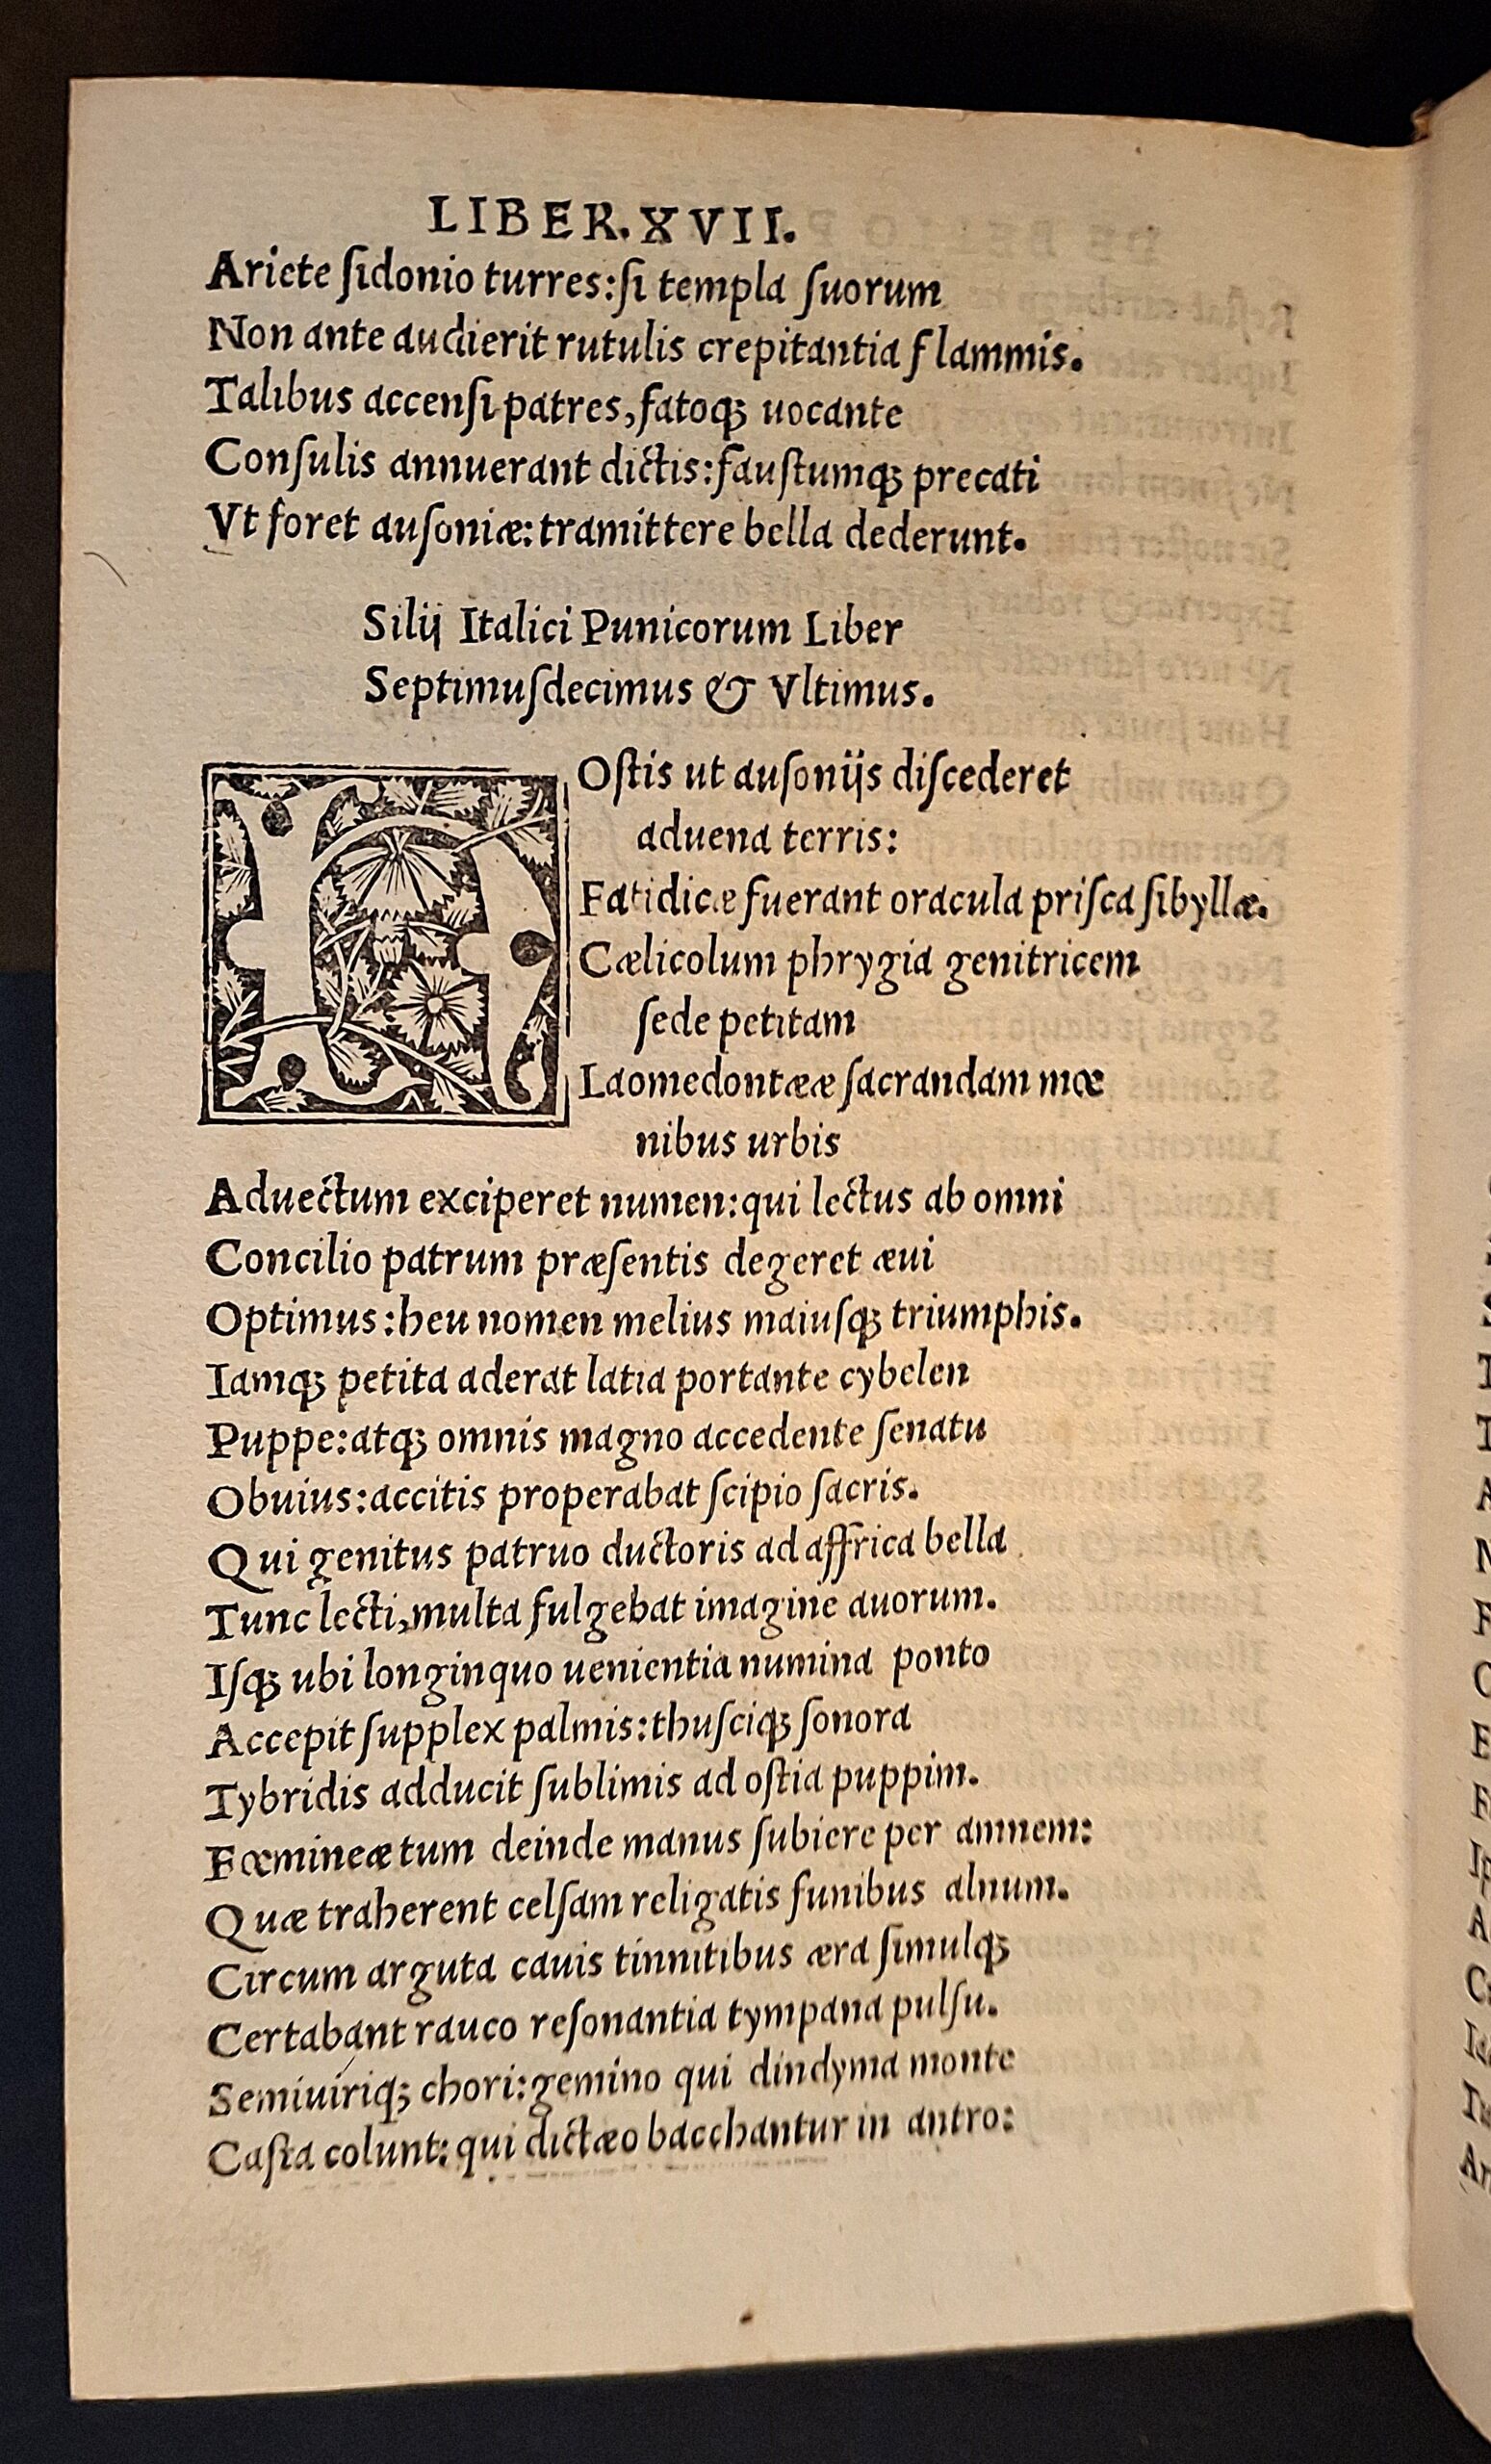 LIBER.XVII.
Ariete ſidonio turres:ſi templa ſuorum
Non ante audierit rutulis crepitantia flammis.
Talibus accenſi patres,fatoqꝫ uocante
Conſulis annuerant dictis:fauſtumqꝫ precati
Vt foret auſoniæ:tramittere bella dederunt.
Silij Italici Punicorum Liber
Septimuſdecimus & Vltimus.
HOſtis ut auſonijs diſcederet
aduena terris:
Fatidicæ fuerant oracula priſca ſibyllæ.
Cælicolum phrygia genitricem
ſede petitam
Laomedontææ ſacrandam mœ
nibus urbis
Aduectum exciperet numen:qui lectus ab omni
Concilio patrum præſentis degeret æui
Optimus:heu nomen melius maiuſqꝫ triumphis.
Iamqꝫ petita aderat latia portante cybelen
Puppe:atqꝫ omnis magno accedente ſenatu
Obuius:accitis properabat ſcipio ſacris.
Qui genitus patruo ductoris ad affrica bella
Tunc lecti,multa fulgebat imagine auorum.
Iſqꝫ ubi longinquo uenientia numina ponto
Accepit ſupplex palmis:thuſciqꝫ ſonora
Tybridis adducit ſublimis ad oſtia puppim.
Fœmineæ tum deinde manus ſubiere per amnem:
Quæ traherent celſam religatis funibus alnum.
Circum arguta cauis tinnitibus æra ſimulqꝫ
Certabant rauco reſonantia tympana pulſu.
Semiuiriqꝫ chori:gemino qui dindyma monte
Caſta colunt:qui dictæo bacchantur in antro: